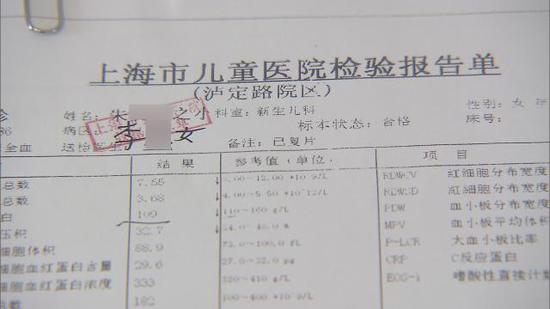 上海市儿童医院检验报告单
(泸定路院区)
诊 姓名: 朱 之小 科室: 新生儿科 性别: 女 年
86 病区: 标本状态: 合格 床号:
全血 送检医 李 女 备注: 已复片
结果 参考值 (单位) 项目
总数 7.55 ↓ RDW-CV 红细胞分布宽度
总数 3.68 ↓ RDW-SD 红细胞分布宽度
白 109 ↓ 110-160 g/L PDW 血小板分布宽度
压积 32.7 ↓ MPV 血小板平均体积
细胞体积 88.9 P-LCR 大血小板比率
细胞血红蛋白含量 29.6 CRP C反应蛋白
细胞血红蛋白浓度 333 嗜酸性直接计数
总数 182 100-400 *10^9/L